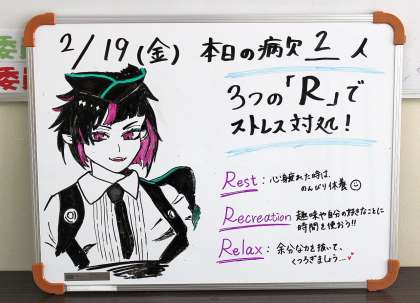 委
委員
2/19(金) 本日の病欠 2 人
3つの「R」で
ストレス対処!
Rest : 心身疲れた時は、
のんびり休養
Recreation 趣味や自分の好きなことに
時間を使おう!!
Relax : 余分な力を抜いて、
くつろぎましょう…